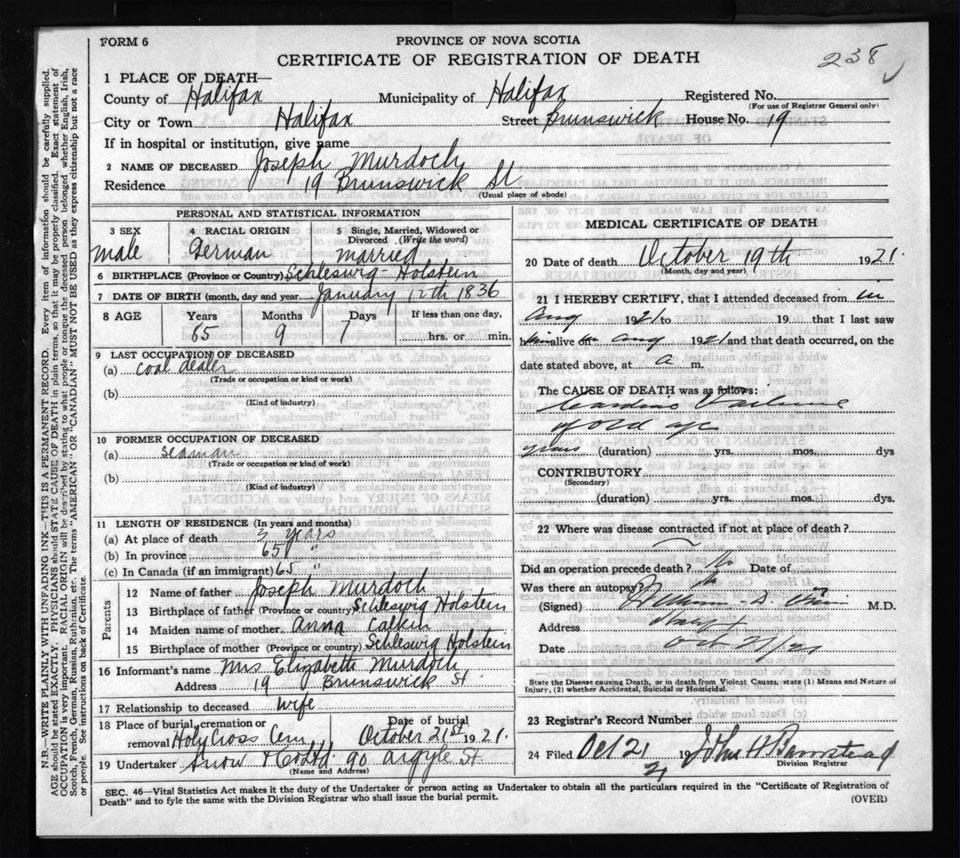 FORM 6
PROVINCE OF NOVA SCOTIA
CERTIFICATE OF REGISTRATION OF DEATH
238
1 PLACE OF DEATH—
County of Halifax Municipality of Halifax Registered No.
(For use of Registrar General only)
City or Town Halifax Street Brunswick House No. 19
If in hospital or institution, give name
2 NAME OF DECEASED Joseph Murdoch
Residence 19 Brunswick St
(Usual place of abode)
PERSONAL AND STATISTICAL INFORMATION
3 SEX 4 RACIAL ORIGIN 5 Single, Married, Widowed or Divorced (Write the word)
male German married
6 BIRTHPLACE (Province or Country) Schleswig-Holstein
7 DATE OF BIRTH (month, day and year January 12th 1836
8 AGE Years Months Days If less than one day,
65 9 7 hrs. or min.
9 LAST OCCUPATION OF DECEASED
(a) coal dealer
(Trade or occupation or kind or work)
(b)
(Kind of industry)
10 FORMER OCCUPATION OF DECEASED
(a) seaman
(Trade or occupation or kind or work)
(b)
(Kind of industry)
11 LENGTH OF RESIDENCE (In years and months)
(a) At place of death 3 years
(b) In province 65 "
(c) In Canada (if an immigrant) 65 "
Parents
12 Name of father Joseph Murdoch
13 Birthplace of father (Province or country) Schleswig Holstein
14 Maiden name of mother Anna Calkin
15 Birthplace of mother (Province or country) Schleswig Holstein
16 Informant's name Mrs Elizabeth Murdoch
Address 19 Brunswick St.
17 Relationship to deceased wife
18 Place of burial, cremation or removal Holy Cross Cem Date of burial October 21st 1921.
19 Undertaker Snow & Co Ltd 90 Argyle St.
(Name and Address)
MEDICAL CERTIFICATE OF DEATH
20 Date of death October 19th 1921.
(Month, day and year)
21 I HEREBY CERTIFY, that I attended deceased from in
Aug 1921 to 19 that I last saw
him alive on Aug 1921 and that death occurred, on the
date stated above, at a m.
The CAUSE OF DEATH was as follows:
Cardiac Failure
of old age
years (duration) yrs. mos. dys
CONTRIBUTORY
(Secondary)
(duration) yrs. mos. dys.
22 Where was disease contracted if not at place of death?
Did an operation precede death? No Date of
Was there an autopsy? No
(Signed) M.D.
Address
Date Oct 21/21
State the Disease causing Death, or in death from Violent Causes, state (1) Means and Nature of
Injury, (2) whether Accidental, Suicidal or Homicidal.
23 Registrar's Record Number
24 Filed Oct 21 1921 John H Barnstead
Division Registrar
SEC. 46—Vital Statistics Act makes it the duty of the Undertaker or person acting as Undertaker to obtain all the particulars required in the "Certificate of Registration of
Death" and to fyle the same with the Division Registrar who shall issue the burial permit.
(OVER)
N.B.—WRITE PLAINLY WITH UNFADING INK—THIS IS A PERMANENT RECORD. Every item of information should be carefully supplied.
AGE should be stated EXACTLY. PHYSICIANS should STATE CAUSE OF DEATH in plain terms, so that it may be properly classified. Exact statement of
OCCUPATION is very important. RACIAL ORIGIN will be described by stating to what people or tongue the deceased person belonged whether English, Irish,
Scotch, French, German, Russian, Ruthenian, etc. The terms "AMERICAN" OR "CANADIAN" MUST NOT BE USED as they express citizenship but not a race
or people. See instructions on back of Certificate.